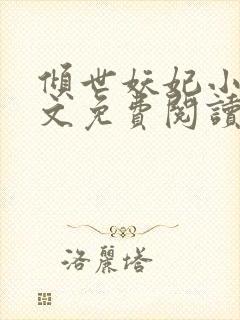 傾世妖妃小
文免費閱讀
洛麗塔